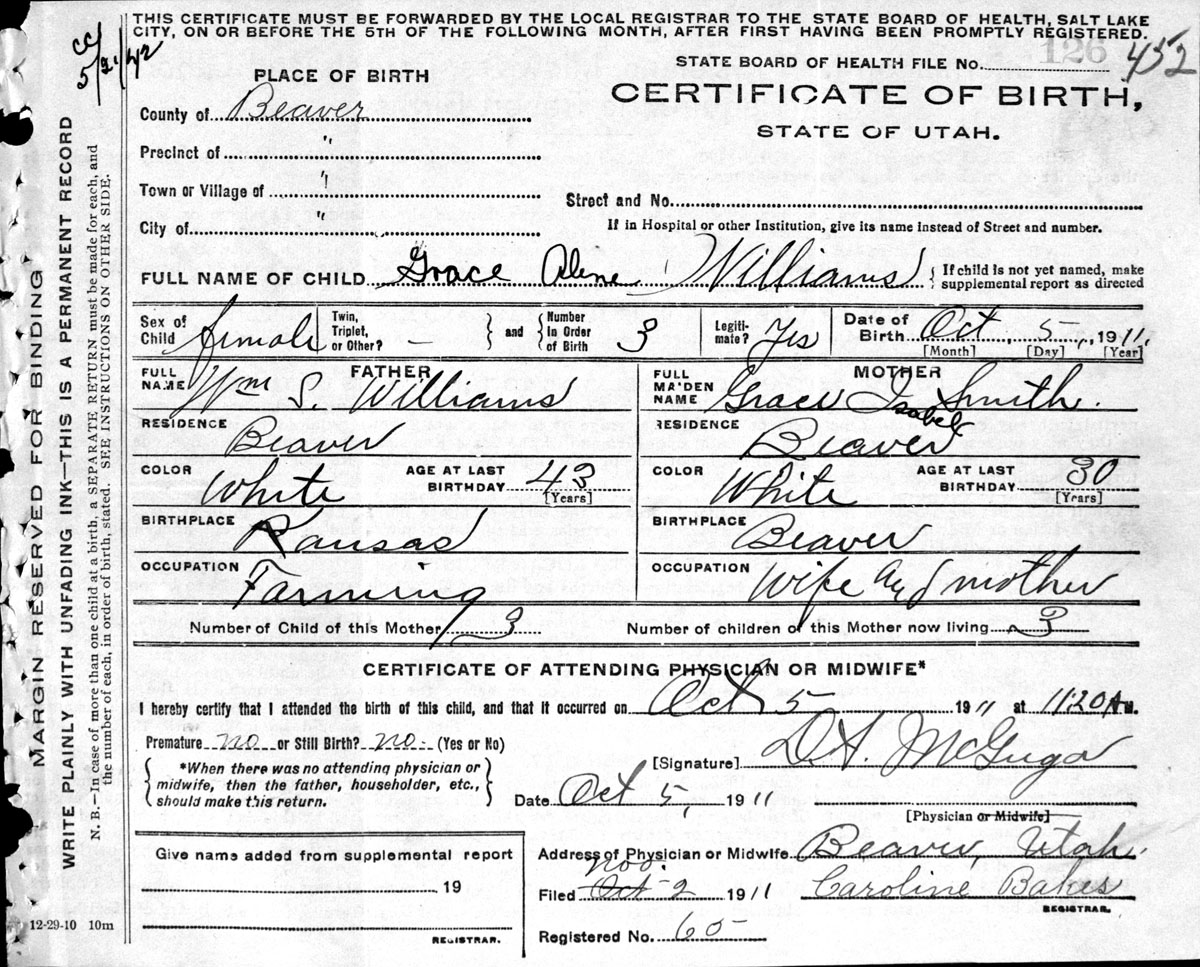 THIS CERTIFICATE MUST BE FORWARDED BY THE LOCAL REGISTRAR TO THE STATE BOARD OF HEALTH, SALT LAKE
CITY, ON OR BEFORE THE 5TH OF THE FOLLOWING MONTH, AFTER FIRST HAVING BEEN PROMPTLY REGISTERED.
MARGIN RESERVED FOR BINDING
WRITE PLAINLY WITH UNFADING INK—THIS IS A PERMANENT RECORD
N. B.—In case of more than one child at a birth, a SEPARATE RETURN must be made for each, and
the number of each, in order of birth, stated. SEE INSTRUCTIONS ON OTHER SIDE.
STATE BOARD OF HEALTH FILE No. 126 452
PLACE OF BIRTH
CERTIFICATE OF BIRTH,
STATE OF UTAH.
County of Beaver
Precinct of "
Town or Village of "
Street and No.
City of "
If in Hospital or other Institution, give its name instead of Street and number.
FULL NAME OF CHILD Grace Alene Williams { If child is not yet named, make
supplemental report as directed
Sex of Child female Twin, Triplet, or Other? — } and { Number In Order of Birth 3 Legitimate? Yes Date of Birth Oct 5, 1911.
[Month] [Day] [Year]
FATHER
FULL NAME Wm S. Williams
MOTHER
FULL MAIDEN NAME Grace Isabel Smith.
RESIDENCE Beaver
RESIDENCE Beaver
COLOR White AGE AT LAST BIRTHDAY 43 [Years]
COLOR White AGE AT LAST BIRTHDAY 30 [Years]
BIRTHPLACE Kansas
BIRTHPLACE Beaver
OCCUPATION Farming
OCCUPATION Wife and mother
Number of Child of this Mother 3 Number of children of this Mother now living 3
CERTIFICATE OF ATTENDING PHYSICIAN OR MIDWIFE*
I hereby certify that I attended the birth of this child, and that it occurred on Oct 5 1911 at 11:20 A M.
Premature no or Still Birth? no (Yes or No)
{ *When there was no attending physician or
midwife, then the father, householder, etc.,
should make this return. }
[Signature] D.A. McGuga
Date Oct 5, 1911
[Physician or Midwife]
Give name added from supplemental report
19
REGISTRAR.
Address of Physician or Midwife Beaver, Utah.
Nov.
Filed Oct 2 1911 Caroline Bakes
REGISTRAR.
Registered No. 60
12-29-10 10m